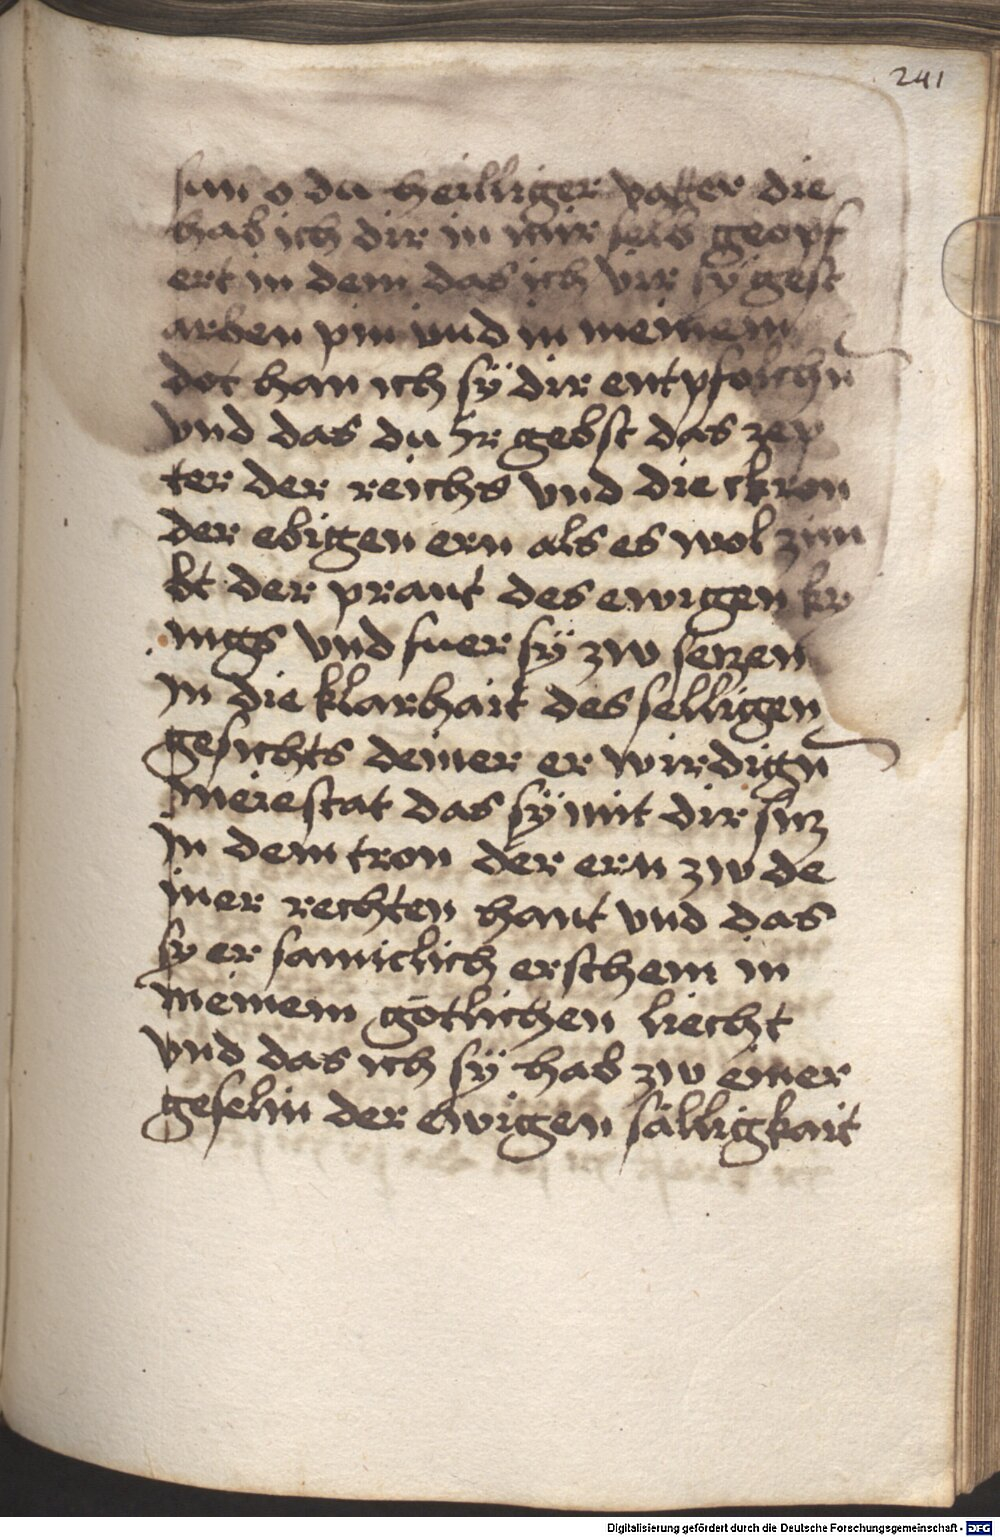 241
sun o du heilliger vatter die
hab ich dir in mir selb geopf
ert in dem das ich vir sÿ gest
arben pin und in meinem
dot han ich sÿ dir entpfolchn
vnd das du Ir gebst das zep
ter der reichs vnd die ckron
der ebigen ern als es wol zim
bt der praut des ewigen kv
nigs vnd fuer sÿ zw seczen
in die klarhait des selligen
gesichts deiner er wirdign
meiestat das sÿ mit dir sicz
in dem tron der ern zw de
iner rechten hant vnd das
sy er samiclich erschein in
meinem götlichen liecht
vnd das ich sÿ hab zw einer
geselin der ewigen sälligkait
Digitalisierung gefördert durch die Deutsche Forschungsgemeinschaft - DFG